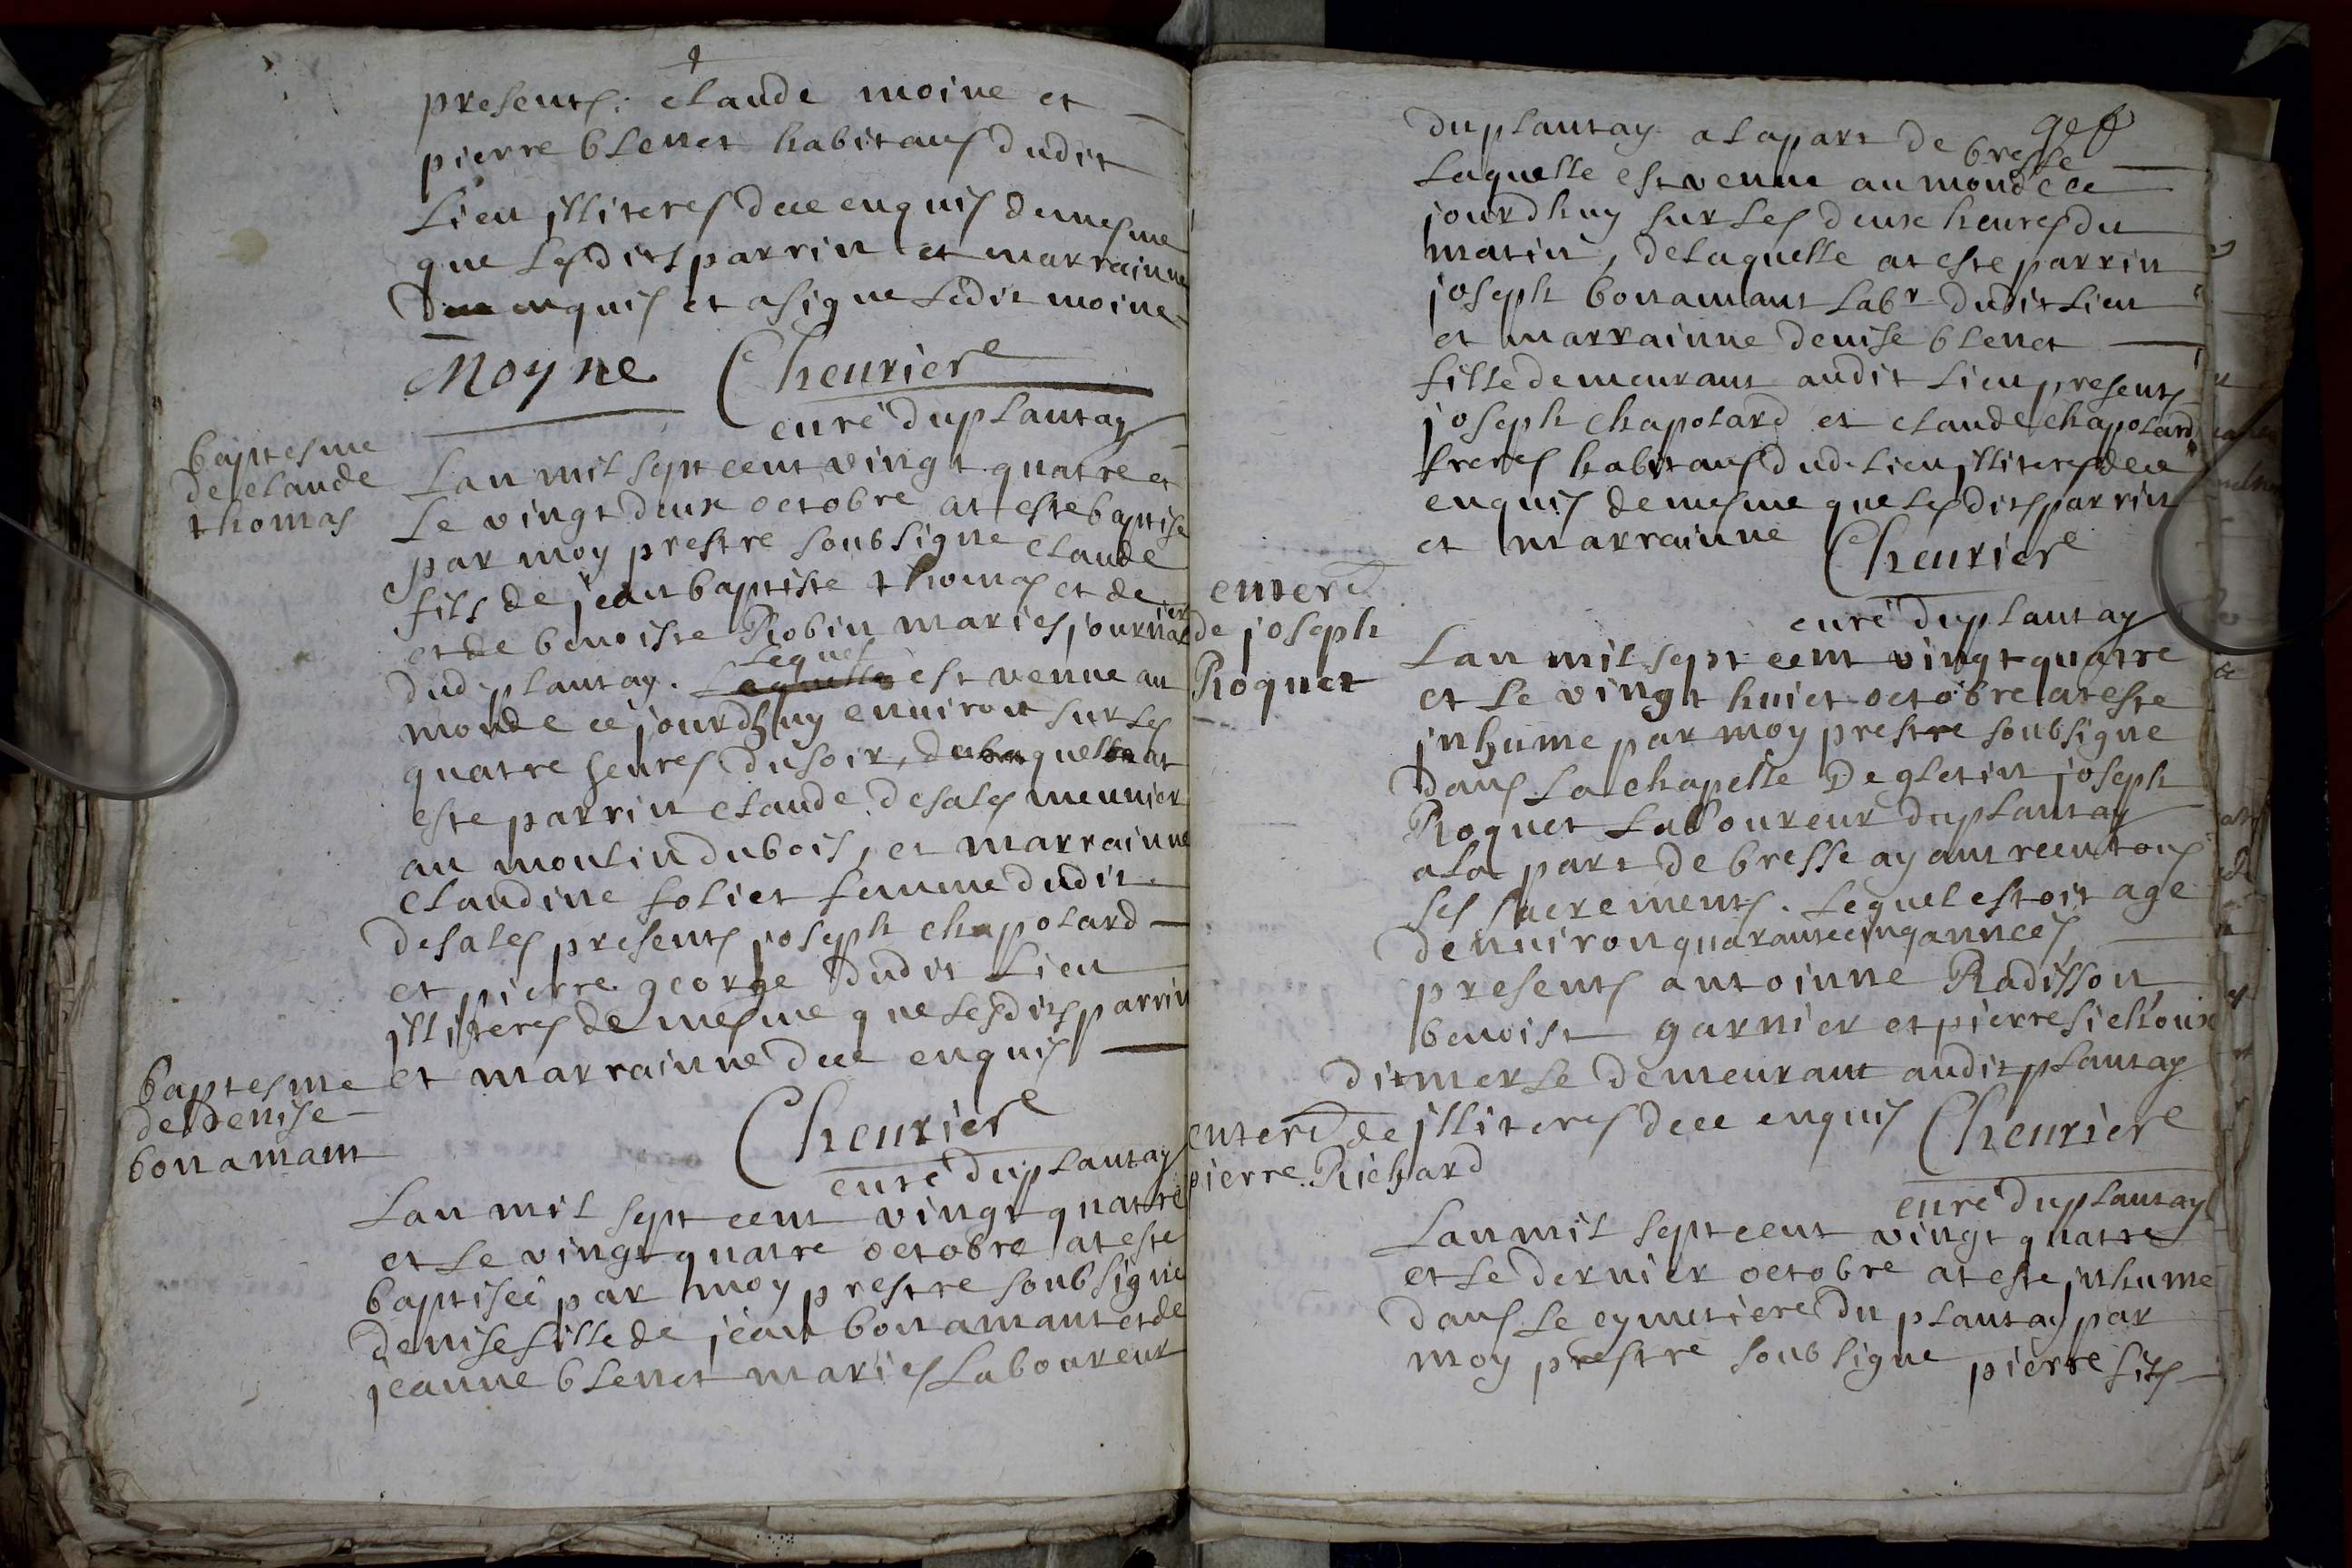 presents: claude moine et
pierre blenet habitans dudit
lieu illiteres dece enquis demesme
que lesdits parrin et marrainne
dece enquis et a signe ledit moine
Moyne Cheuriere
curé duplantay
baptesme
de claude
thomas
Lan mil sept cent vingt quatre et
le vingt deux octobre at este baptise
par moy prestre soubsigne claude
fils de jean baptiste thomas et de
et de benoiste Robin maries journalier
dud. plantay. lequel est venue au
monde ce jourdhuy enuiron sur les
quatre heures dusoir, duquel at
este parrin claude desales meunier
au moulin dubois, et marrainne
claudine foliet femme dudit
desales presents joseph chapolard
et pierre george dudit lieu
illiteres de mesme que lesdits parrin
et marrainne dece enquis
Cheuriere
curé duplantay
baptesme
de denise
bonamant
Lan mil sept cent vingt quatre
et le vingt quatre octobre at este
baptiseé par moy prestre soubsigne
denise fille de jean bonamant et de
jeanne blenet maries laboureur
duplantay a la part de bresse
laquelle est venue au monde ce
jourdhuy sur les deux heures du
matin, delaquelle at este parrin
joseph bonamant labr dudit lieu
et marrainne denise blenet
fille demeurant audit lieu, presents
joseph chapolard et claude chapolard
freres habitans dud. lieu illiteres dece
enquis demesme que lesdits parrin
et marrainne Cheuriere
curé duplantay
enter
de joseph
Roquet
Lan mil sept cent vingt quatre
et le vingt huict octobre at este
inhume par moy prestre soubsigne
dans la chapelle De gletin joseph
Roquet laboureur duplantay
a la part de bresse ayant receu tous
ses sacrements. lequel estoit age
denuiron quarante cinq anneés,
presents antoinne Radisson
benoist garnier et pierre sichoux
dit merle demeurant audit plantay
illiteres dece enquis Cheuriere
curé duplantay
enter de
pierre Richard
Lan mil sept cent vingt quatre
et le dernier octobre at este inhume
dans le cymetiere du plantay par
moy prestre soubsigne pierre fils